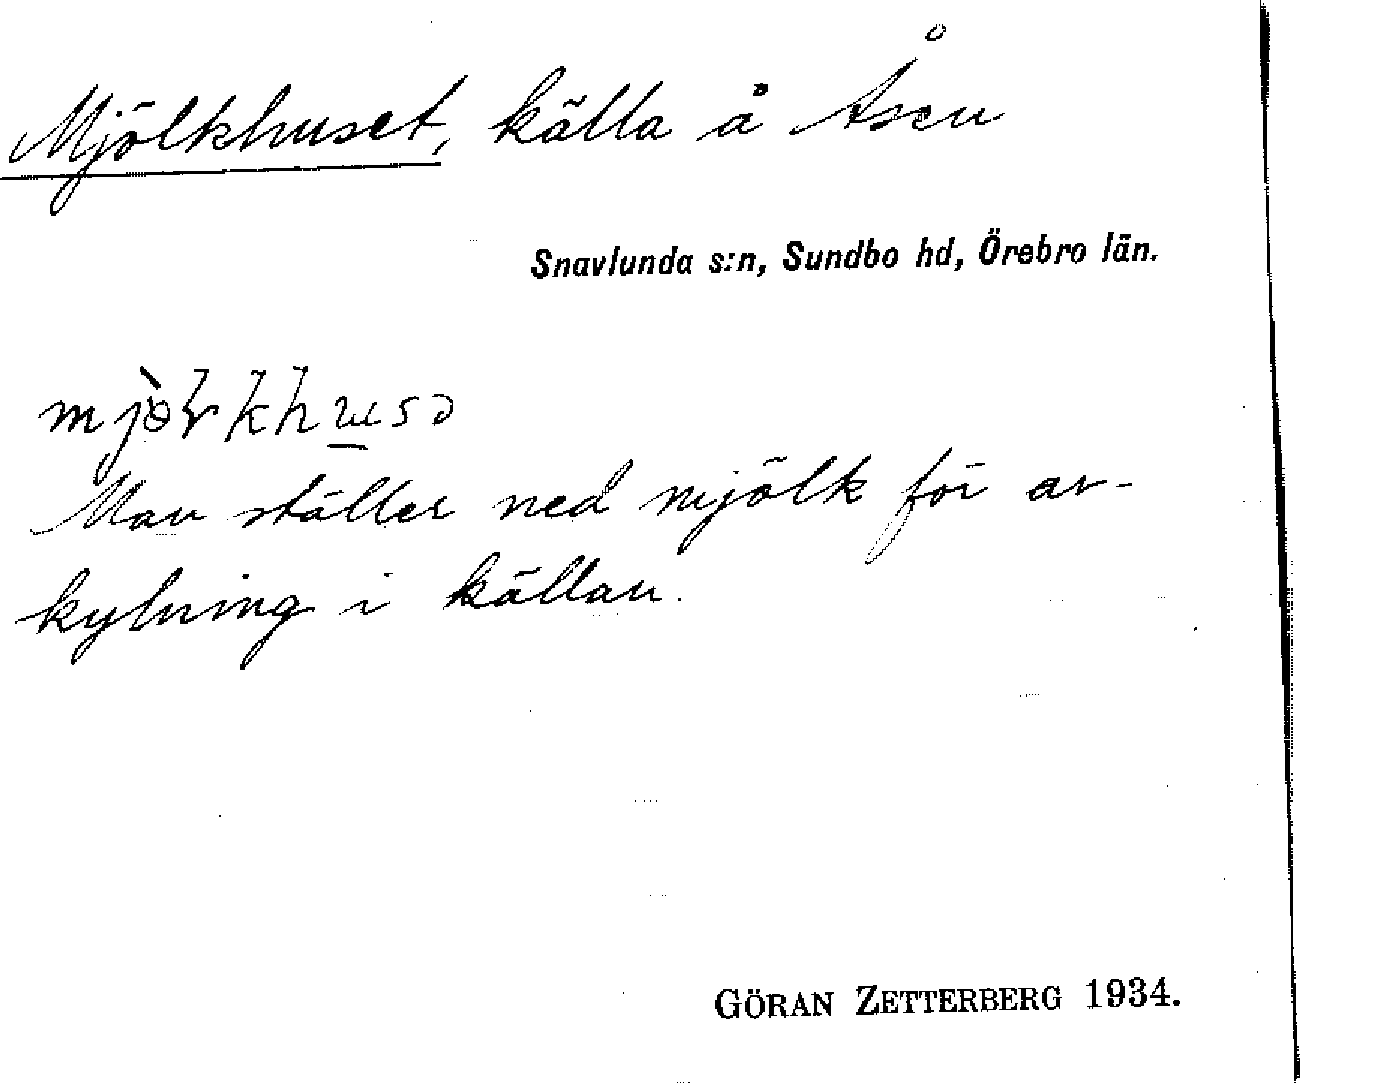 Mjölkhuset, källa å Åsen
Snavlunda s:n, Sundbo hd, Örebro län.
Man ställer ned mjölk för av-
kylning i källan.
GÖRAN ZETTERBERG 1934.